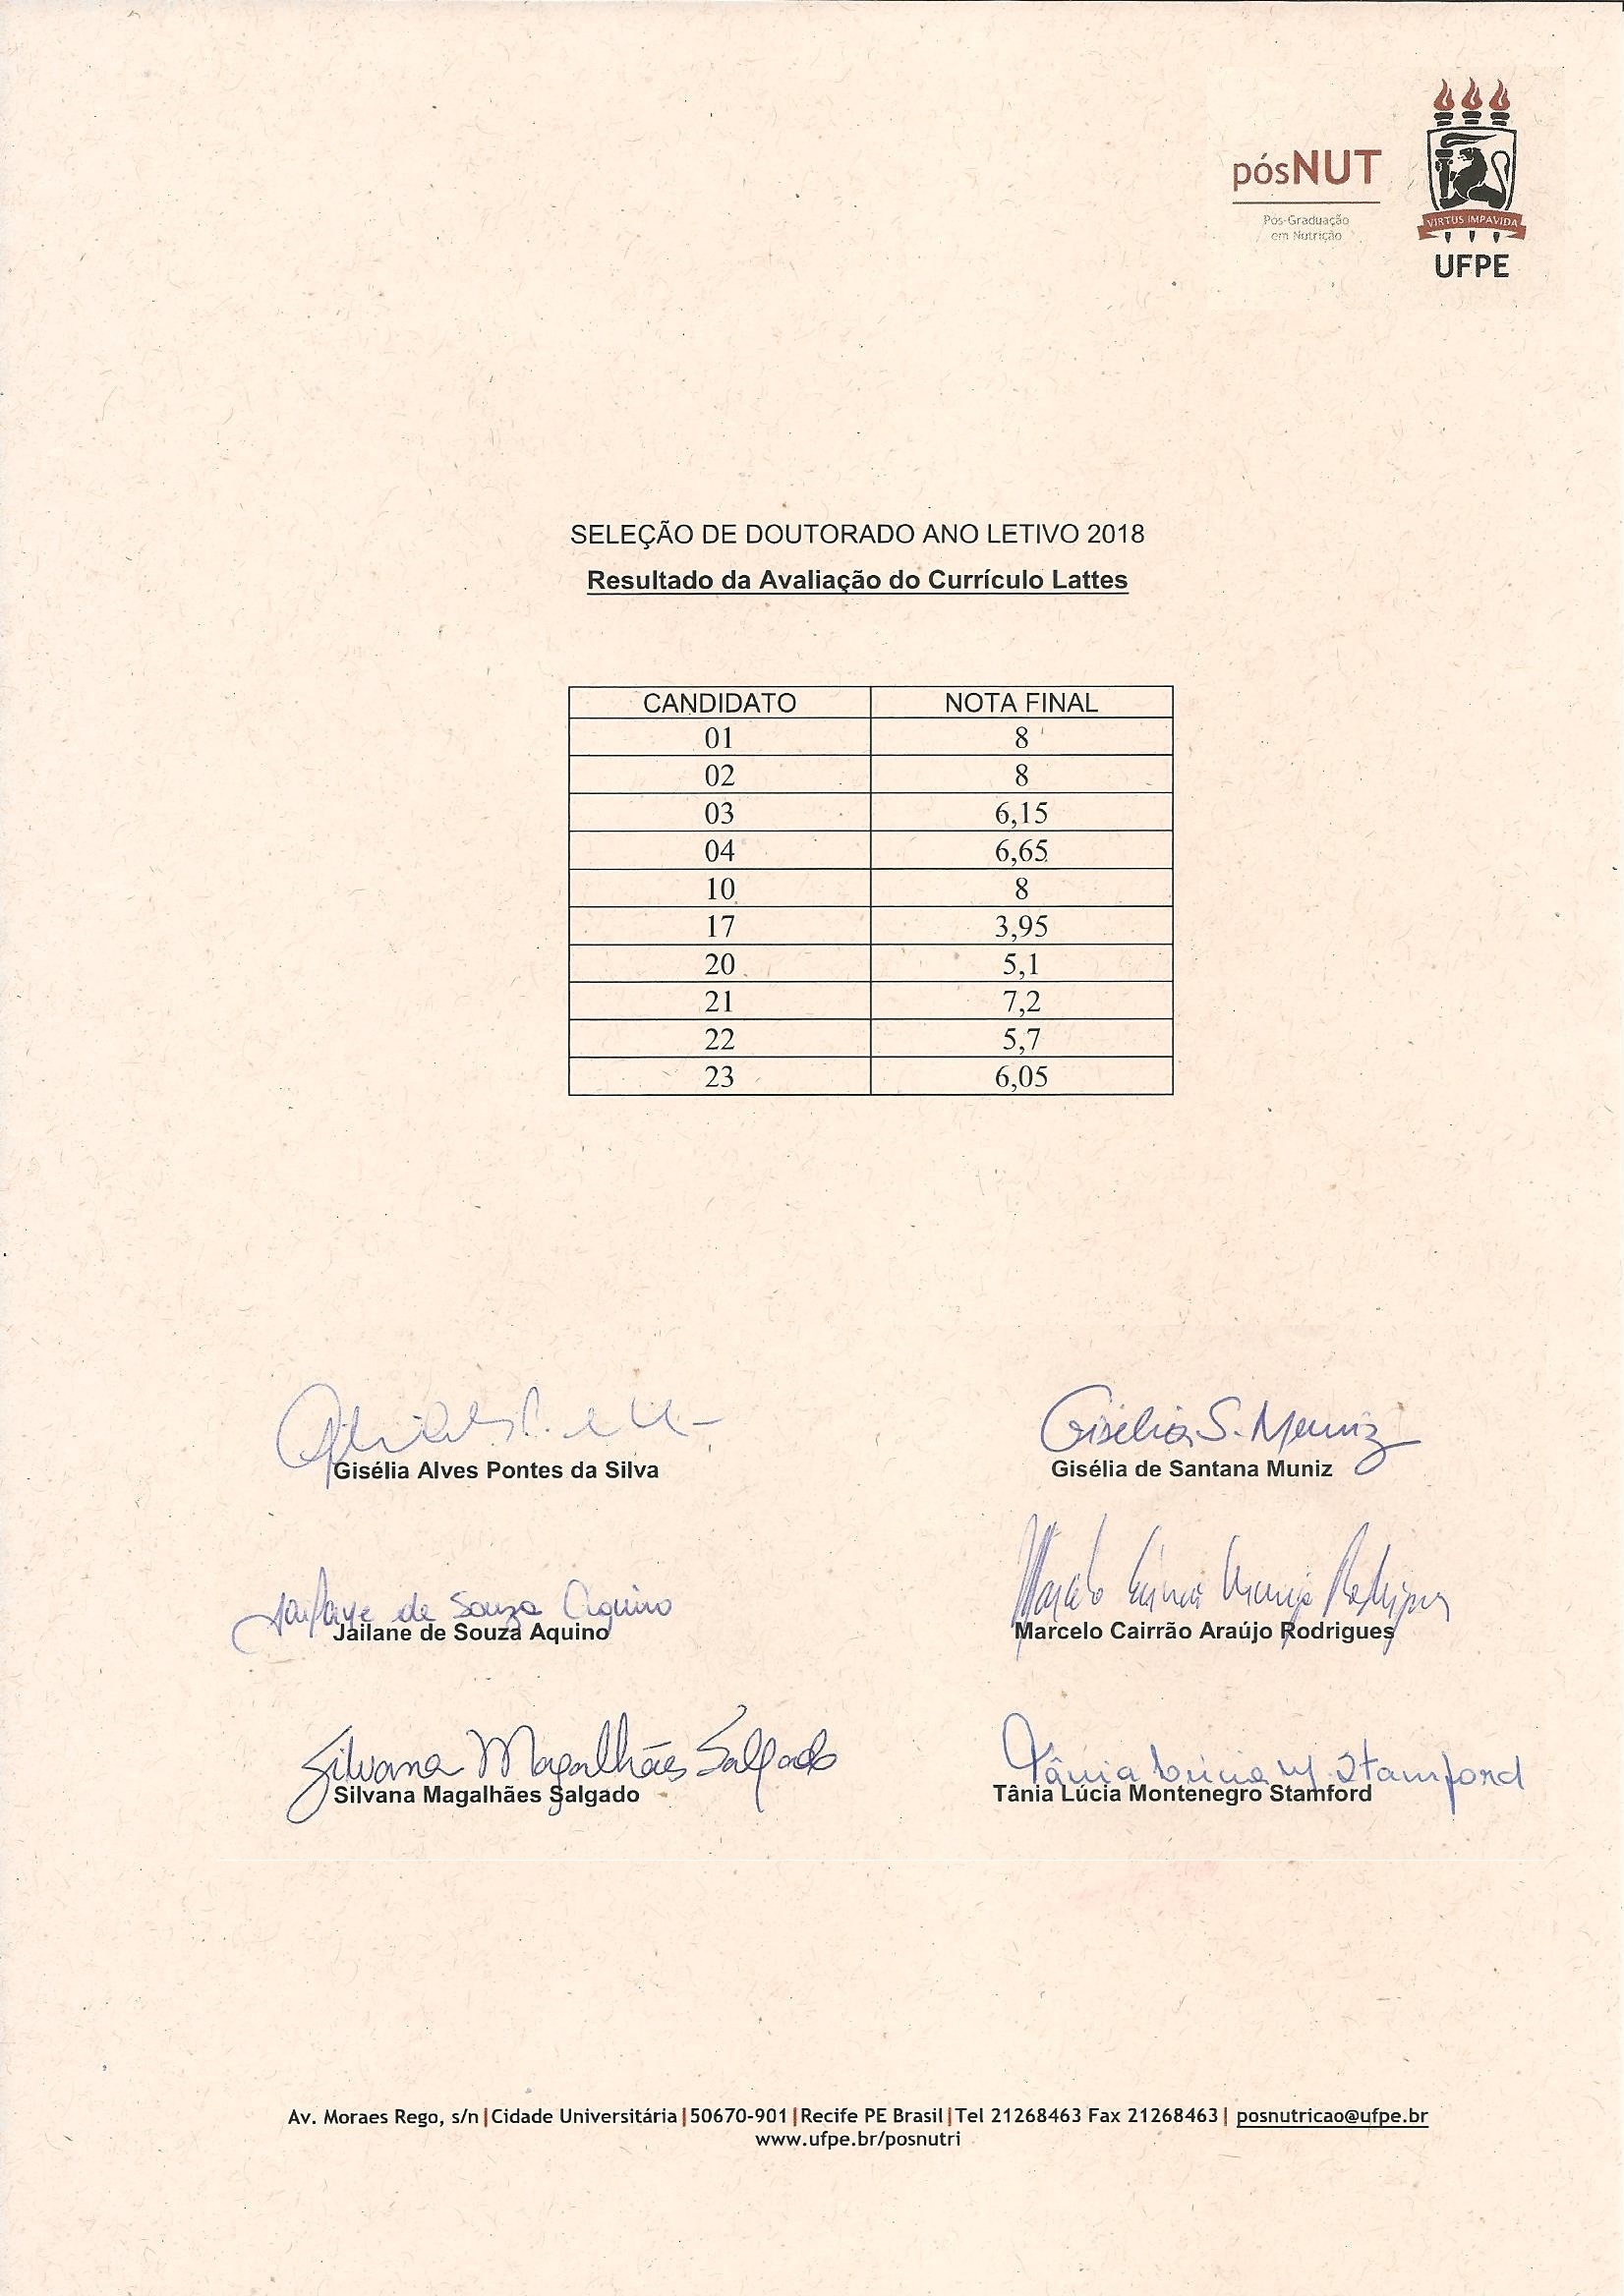 pósNUT
Pós-Graduação
em Nutrição
VIRTUS IMPAVIDA
UFPE
SELEÇÃO DE DOUTORADO ANO LETIVO 2018
Resultado da Avaliação do Currículo Lattes
CANDIDATO NOTA FINAL
01 8
02 8
03 6,15
04 6,65
10 8
17 3,95
20 5,1
21 7,2
22 5,7
23 6,05
Gisélia S. Muniz
Gisélia Alves Pontes da Silva Gisélia de Santana Muniz
de Souza Aquino
Jailane de Souza Aquino Marcelo Cairrão Araújo Rodrigues
Silvana Magalhães Salgado Tânia Lúcia M. Stamford
Silvana Magalhães Salgado Tânia Lúcia Montenegro Stamford
Av. Moraes Rego, s/n|Cidade Universitária|50670-901|Recife PE Brasil|Tel 21268463 Fax 21268463| posnutricao@ufpe.br
www.ufpe.br/posnutri